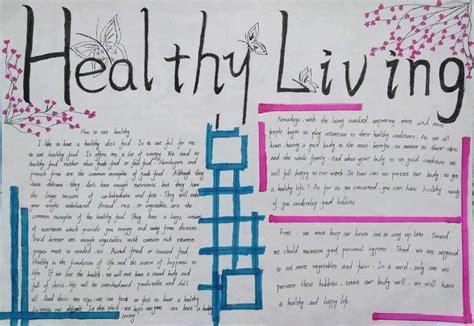 Healthy Living
How to eat healthy
I like to have a healthy diet food. It is useful for me
to eat healthy food. It offers me a lot of energy. We need
healthy food rather than junk food or fast food. Hamburgers and
french fries are the common examples of junk food. Although they
taste delicious, they don't have enough nutrients but they have
the large amount of carbohydrate and fats. They will make
you weight unbalanced. Bread, rice or vegetables are the
common examples of the healthy food. They have a large
amount of nutrients which provide you energy and away from diseases
You'd better eat enough vegetables with contain rich vitamins
proper meat is needed too. Avoid fried or toasted food.
Healthy is the foundation of life and the source of happiness in
life. If we lose the health we will not have a sound body and
full of thrive, life will be and dull
all. Read these can we find in fact to have a healthy
In this place hope anyone can have a healthy
living!
Nowadays with the living standard improving more and more
people begin to pay attention to their healthy conditions. As we all
known, having a good body is the most benefits no matter to their own
and the whole family. And when your body is in good condition we
will full happy to our work. So how can we protect our body, to get
a healthy life? As far as I'm concerned, you can have healthy
if you can develop good habbits.
First, we must keep our hours not to stay up late. Second
we should maintain good personal hygiene. Third, we are supposed
to eat more vegetables and fruits. In a word, only can we
persere these habbits, ensure our body well, we will have
a healthy and happy life.